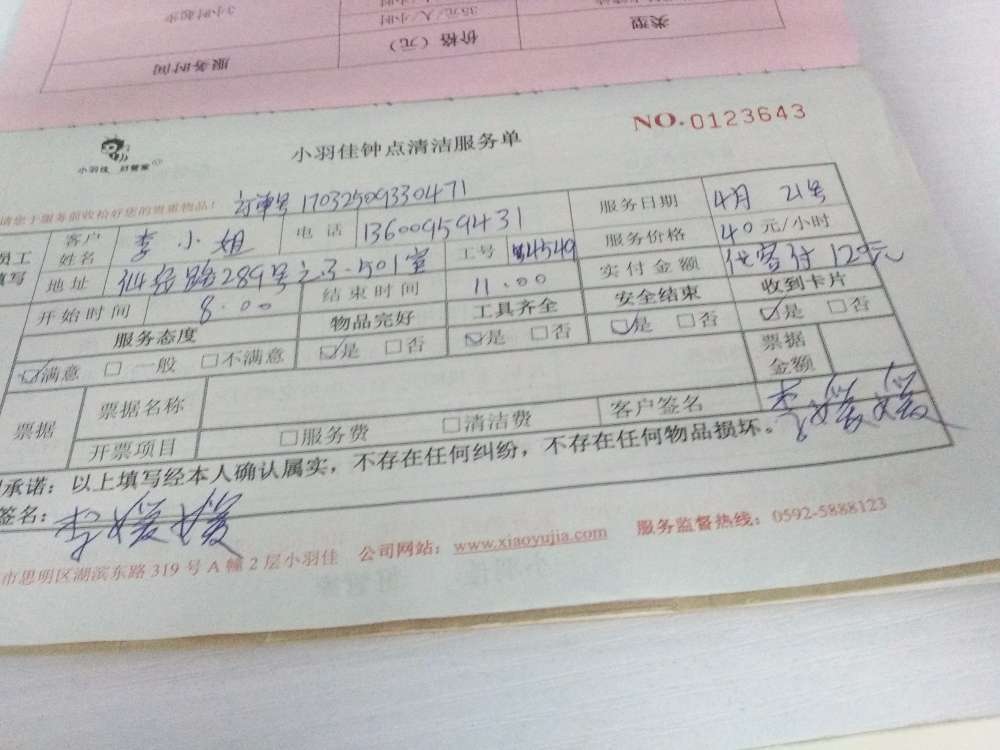 3小时起步
35元/人/小时
类型
价格（元）
服务时间
NO.0123643
小羽佳 好管家
小羽佳钟点清洁服务单
请您于服务前收拾好您的贵重物品！ 订单号 17032509330471
员工填写 客户姓名 李小姐 电话 13600959431 服务日期 4月 21号
地址 仙岳路289号之3.501室 工号 4549 服务价格 40元/小时
开始时间 8.00 结束时间 11.00 实付金额 代客付 120元
服务态度 物品完好 工具齐全 安全结束 收到卡片
☑满意 □一般 □不满意 ☑是 □否 ☑是 □否 ☑是 □否 ☑是 □否
票据 票据名称 票据金额
开票项目 □服务费 □清洁费 客户签名 李媛媛
承诺：以上填写经本人确认属实，不存在任何纠纷，不存在任何物品损坏。
签名：李媛媛
市思明区湖滨东路319号A幢2层小羽佳 公司网站：www.xiaoyujia.com 服务监督热线：0592-5888123